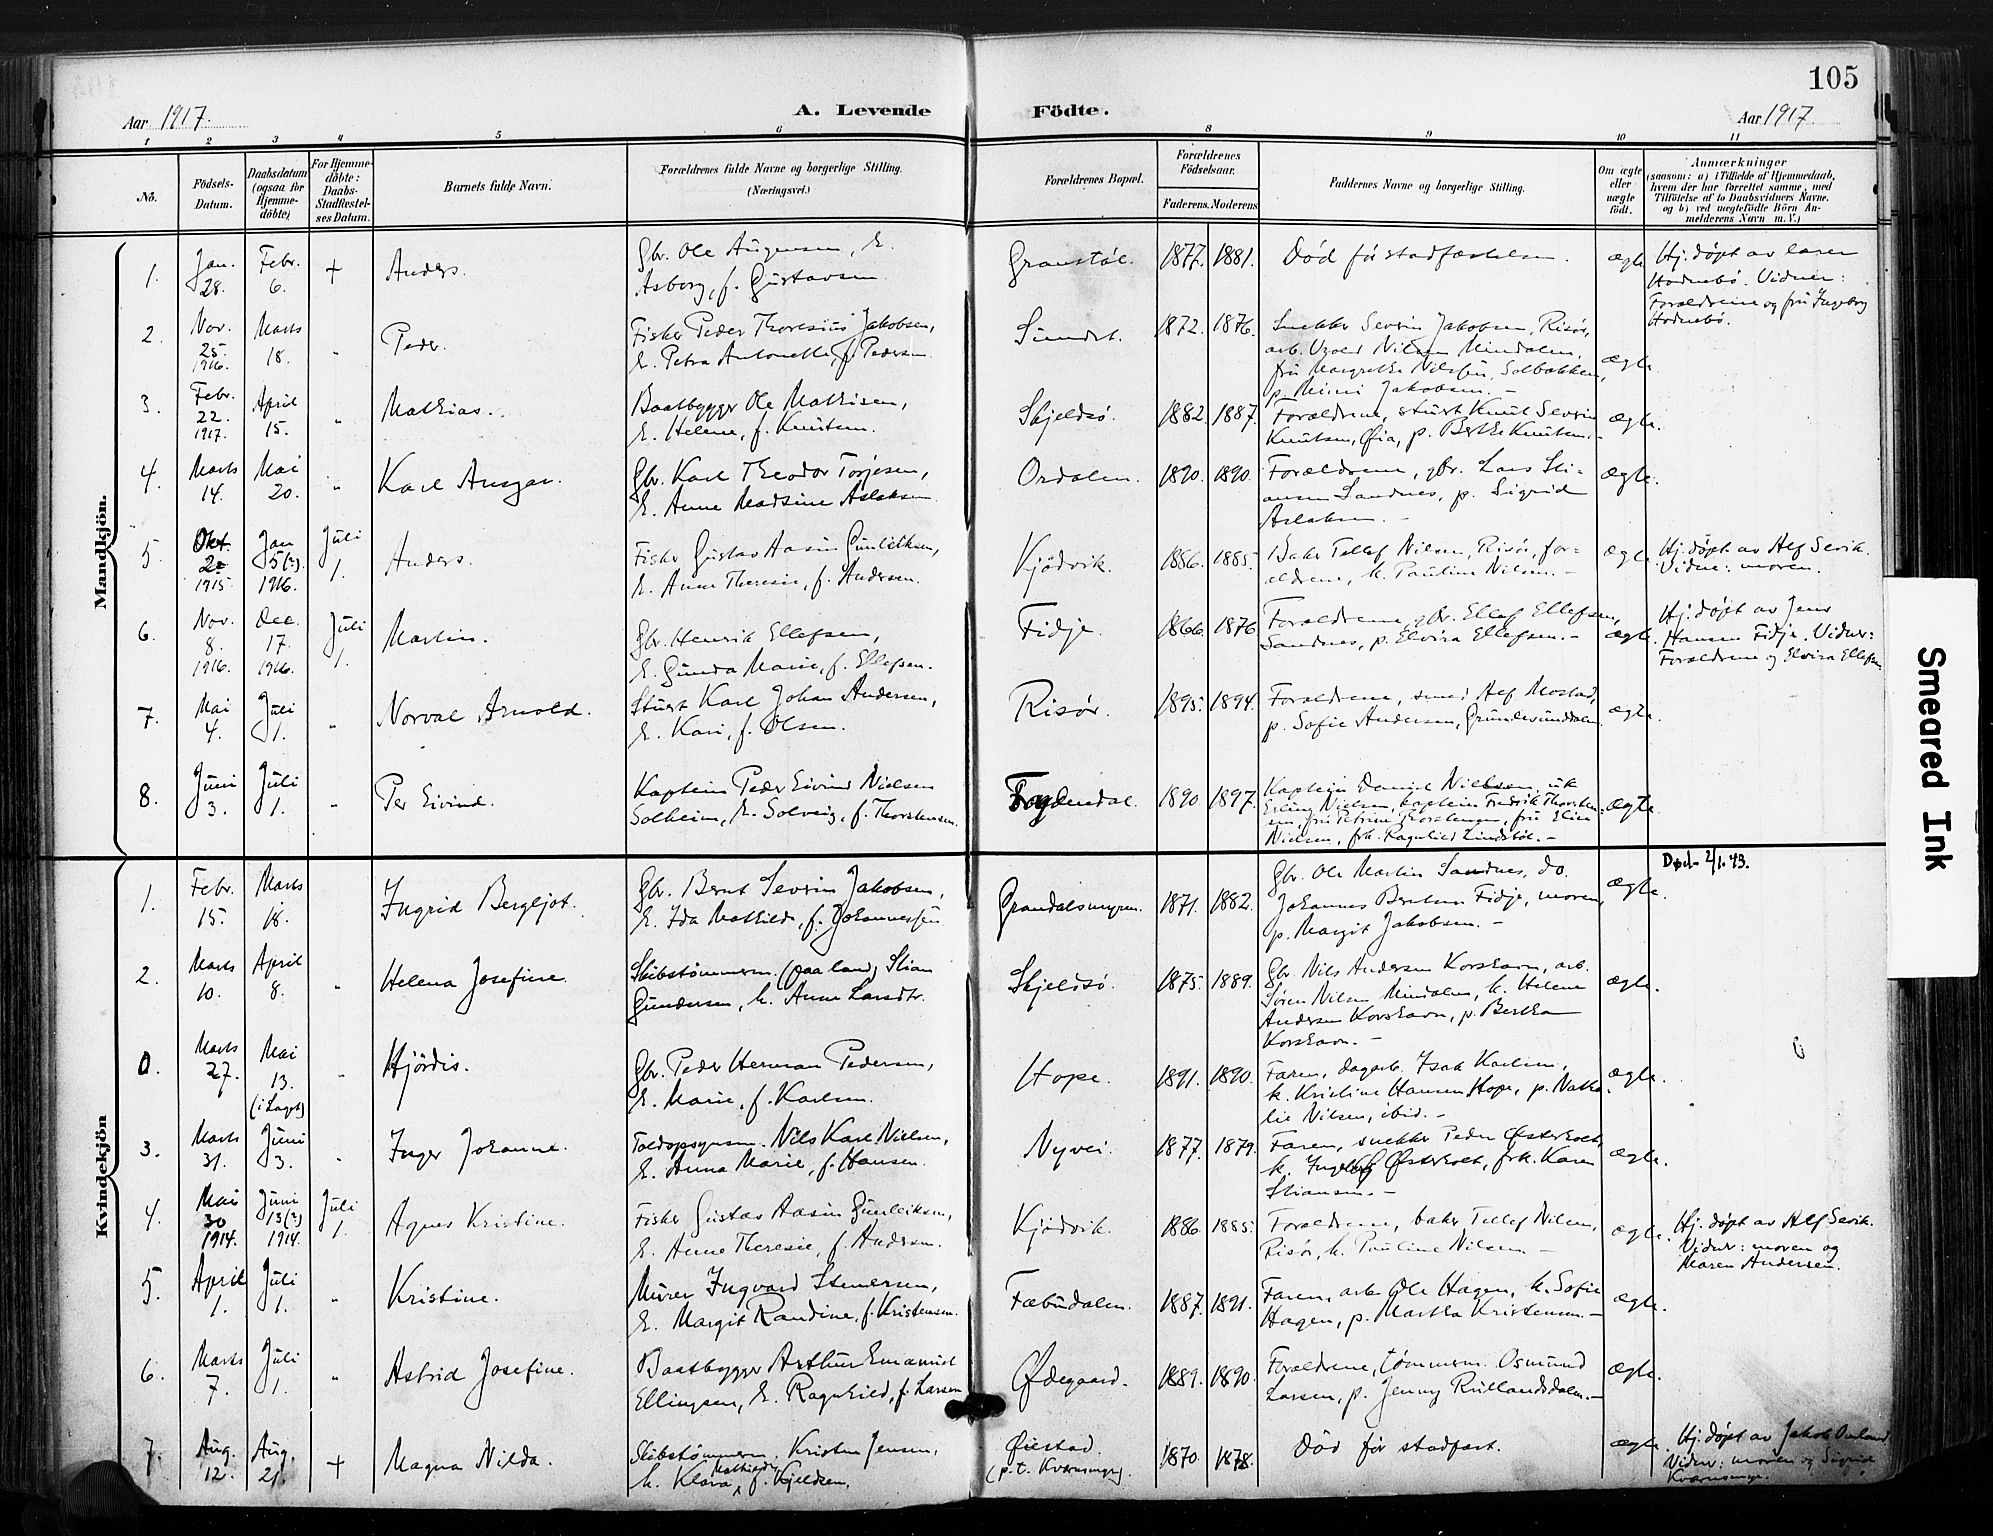 105
Aar 1917.
A. Levende
Födte.
Aar 1917.
1 2 3 4 5 6 8 9 10 11
No.
Födsels-
Datum.
Daabsdatum
(ogsaa for
Hjemme-
döbte)
For Hjemme-
döbte:
Daabs-
Stadfæstel-
ses Datum.
Barnets fulde Navn.
Forældrenes fulde Navne og borgerlige Stilling.
(Næringsvei.)
Forældrenes Bopæl.
Forældrenes
Födselsaar.
Faderens. Moderens
Faddernes Navne og borgerlige Stilling.
Om ægte
eller
uægte
födt.
Anmærkninger
(saasom: a) i Tilfælde af Hjemmedaab,
hvem der har forrettet samme, med
Tilföielse af to Daabsvidners Navne.
og b) ved uægtefödte Börn An-
melderens Navn m. V.)
Mandkjön.
1. Jan. 28. Febr. 6. + Anders.
Gbr. Ole Augensen, h.
Asborg, f. Gustavsen
Granstøl. 1877. 1881.
Død før stadfæstelsen.
ægte
Hj. døpt av laren
Hodnebø. Vidner:
Forældrene og fru Ingeborg
Hodnebø.
2. Nov. 25. 1916. Marts 18. " Peder.
Fisker Peder Thoresius Jakobsen,
h. Petra Antonette, f. Pedersen
Sundet. 1872. 1876.
Snekker Severin Jakobsen, Risør,
arb. Nilsen Mindalen,
fru Margrethe Nilsen, Solbakken,
p. Mimi Jakobsen. -
ægte
3. Febr. 22. 1917. April 15. " Mathias.
Baatbygger Ole Mathisen,
h. Helene, f. Knutsen.
Skjeldsø. 1882. 1887.
Forældrene, styrm. Knut Severin
Knutsen, Øia, p. Berthe Knutsen. -
ægte.
4. Marts 14. Mai 20. " Karl Ansgar.
Gbr. Karl Theodor Torjesen,
h. Anne Madsine Aslaksen
Ordalen. 1890. 1890.
Forældrene, gbr. Lars Sti-
ansen Sandnes, p. Sigrid
Aslaksen. -
ægte.
5 Okt. 22 1915 Jan 5(?) 1916. Juli 1. Anders.
Fisker Gustav Aasin Gunleiksen,
h. Anne Theresie, f. Andersen.
Kjødvik. 1886. 1885.
Baker Tellef Nilsen, Risør, for-
ældrene, k. Pauline Nilsen. -
ægte.
Hj. døpt av Alf Sevik.
Vidne: moren.
6. Nov. 8. 1916. Dec. 17. 1916. Juli 1. Martin.
Gbr. Henrik Ellefsen,
h. Gunda Marie, f. Ellefsen.
Fidje. 1866. 1876.
Forældrene, gbr. Ellef Ellefsen,
Sandnes, p. Elvira Ellefsen. -
ægte.
Hj. døpt av Jens
Hansen Fidje. Vidner:
Forældrene og Elvira Ellefsen
7. Mai 4. Juli 1. " Norval Arnold.
Styrm. Karl Johan Andersen,
h. Kari, f. Olsen.
Risør. 1895. 1894.
Forældrene, smed Alf Mostad,
p. Sofie Andersen, Grundesunddalen
ægte.
8. Juni 3. Juli 1. " Per Eivind.
Kaptein Peder Eivind Nielsen
Solheim, h. Solveig, f. Thorstensen.
Frydendal. 1890. 1897.
Kaptein Daniel Nielsen, stk
Erling Nielsen, kaptein Fredrik Thorsten-
sen, fru Petrine Thorstensen, fru Elise
Nielsen, frk. Ragnhild Lindstøl. -
ægte.
Kvindekjön
1. Febr. 15. Marts 18. Ingrid Bergljot.
Gbr. Bernt Severin Jakobsen,
h. Ida Mathilde, f. Johannessen
Grandalsmyren. 1871. 1882.
Gbr. Ole Martin Sandnes, do.
Johannes Berntsen Fidje, moren,
p. Margit Jakobsen. -
ægte.
Død 2/1.43.
2. Marts 10. April 8. " Helena Josefine.
Skibstømmerm. (paa land) Stian
Gundersen, h. Anne Larsdtr.
Skjeldsø. 1875. 1889.
Gbr. Nils Andersen Korshavn, arb.
Søren Nilsen Mindalen, k. Helene
Andersen Korshavn, p. Bertha
Korshavn. -
ægte.
0. Marts 27. Mai 13. (i Laget) " Hjördis.
Gbr. Peder Herman Pedersen,
h. Marie, f. Karlsen.
Hope. 1891. 1890.
Faren, dagarb. Isak Karlsen,
k. Kristine Hansen Hope, p. Natha-
lie Nilsen, ibid. -
ægte.
3. Marts 31. Juni 3. " Inger Johanne.
Toldopsynsm. Nils Karl Nielsen,
h. Anna Marie, f. Hansen.
Nyvei. 1877. 1879.
Faren, snekker Peder Østerholt,
k. Ingeborg Østerholt, frk. Karen
Stiansen. -
ægte.
4. Mai 30 1914. Juni 13(?) 1914. Juli 1. Agnes Kristine.
Fisker Gustav Aasin Gunleiksen,
h. Anne Theresie, f. Andersen.
Kjødvik. 1886. 1885.
Forældrene, baker Tellef Nilsen,
Risør, k. Pauline Nilsen. -
ægte.
Hj. døpt av Alf Sevik.
Vidner: moren og
Maren Andersen.
5. April 1. Juli 1. " Kristine.
Murer Ingvard Stenersen,
h. Margit Randine, f. Kristensen.
Fæbudalen. 1887. 1891.
Faren, arb. Ole Hagen, k. Sofie
Hagen, p. Martha Kristensen. -
ægte.
6. Marts 7. Juli 1. " Astrid Josefine.
Baatbygger Arthur Emanuel
Ellingsen, h. Ragnhild, f. Larsen
Ødegaard. 1889. 1890.
Forældrene, tømmerm. Osmund
Larsen, p. Jenny Rullandsdalen. -
ægte.
7. Aug. 12. Aug. 21. + Magna Nilda.
Skibstømmerm. Kristen Jensen,
h. Klara Mathilde, f. Kjeldsen.
Øiestad.
(p. t. Kværnmyr). 1870. 1878.
Død før stadfæst.
ægte.
Hj. døpt av Jakob
Vidner: moren og Sigrid
Kværnmyr.
Smeared Ink